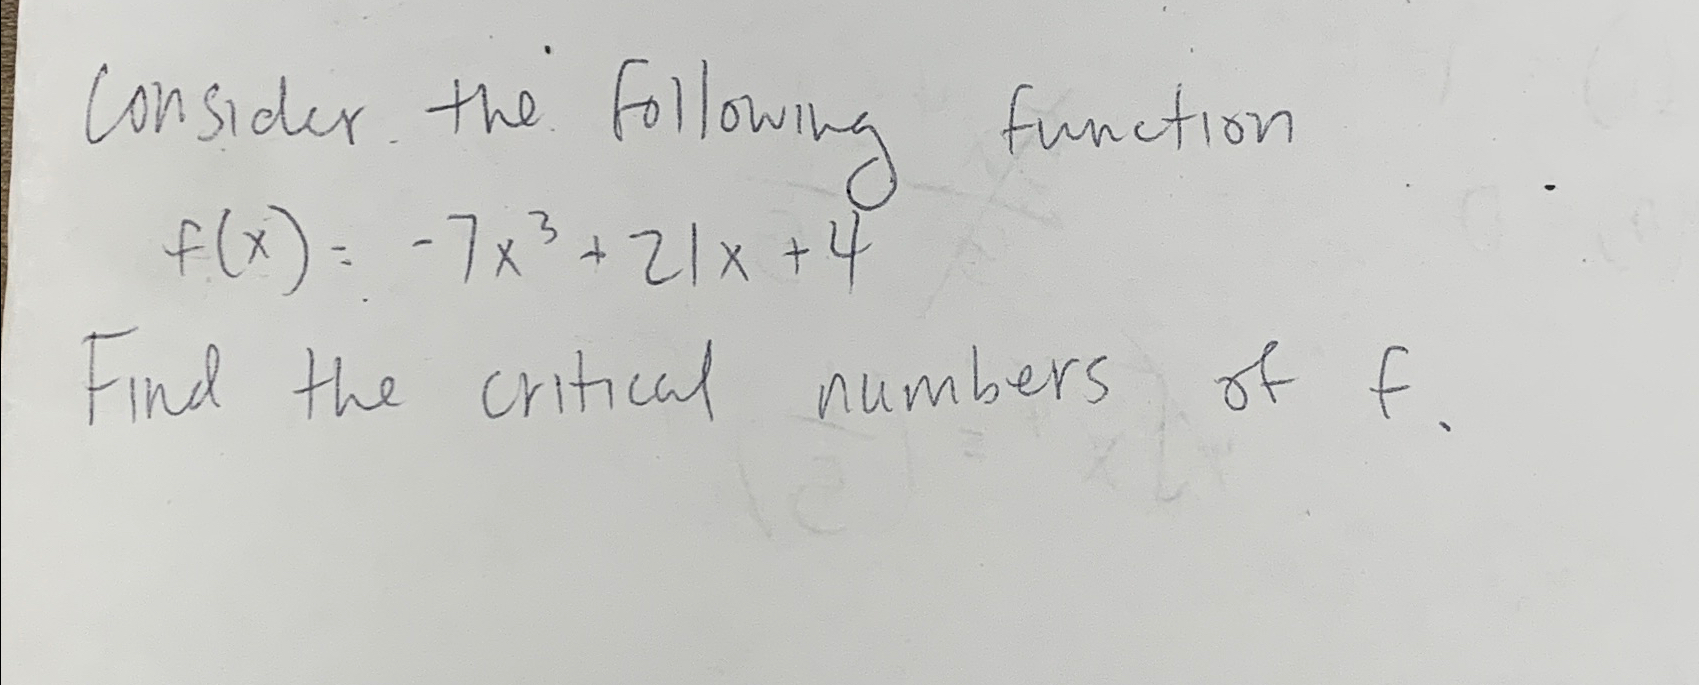 Consider the following function
f(x) = -7x³ + 21x + 4
Find the critical numbers of f.